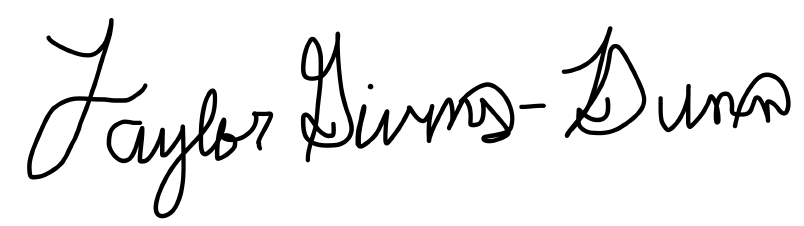 Taylor Givens-Dunn